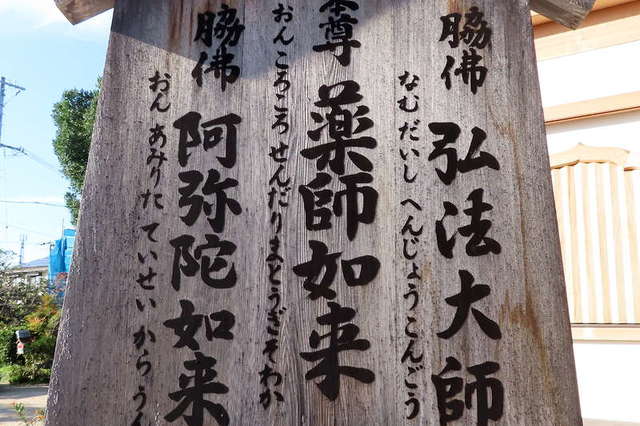 脇佛 弘法大師
なむ だいし へんじょうこんごう
本尊 薬師如来
おん ころころ せんだりまとうぎそわか
脇佛 阿弥陀如来
おん あみりた ていせい からうん